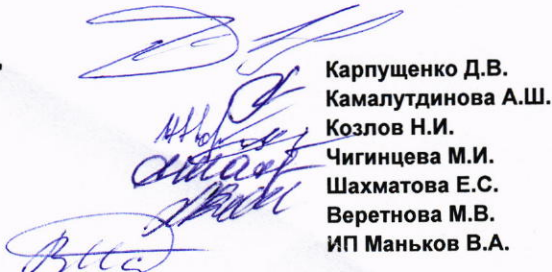 Карпущенко Д.В.
Камалутдинова А.Ш.
Козлов Н.И.
Чигинцева М.И.
Шахматова Е.С.
Веретнова М.В.
ИП Маньков В.А.